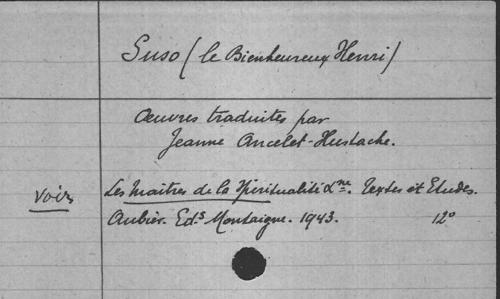 Suso (le Bienheureux Henri)
Œuvres traduites par
Jeanne Ancelet-Hustache.
voir Les Maîtres de la Spiritualité Xne. Textes et Etudes.
Aubier. Eds Montaigne. 1943. 12°